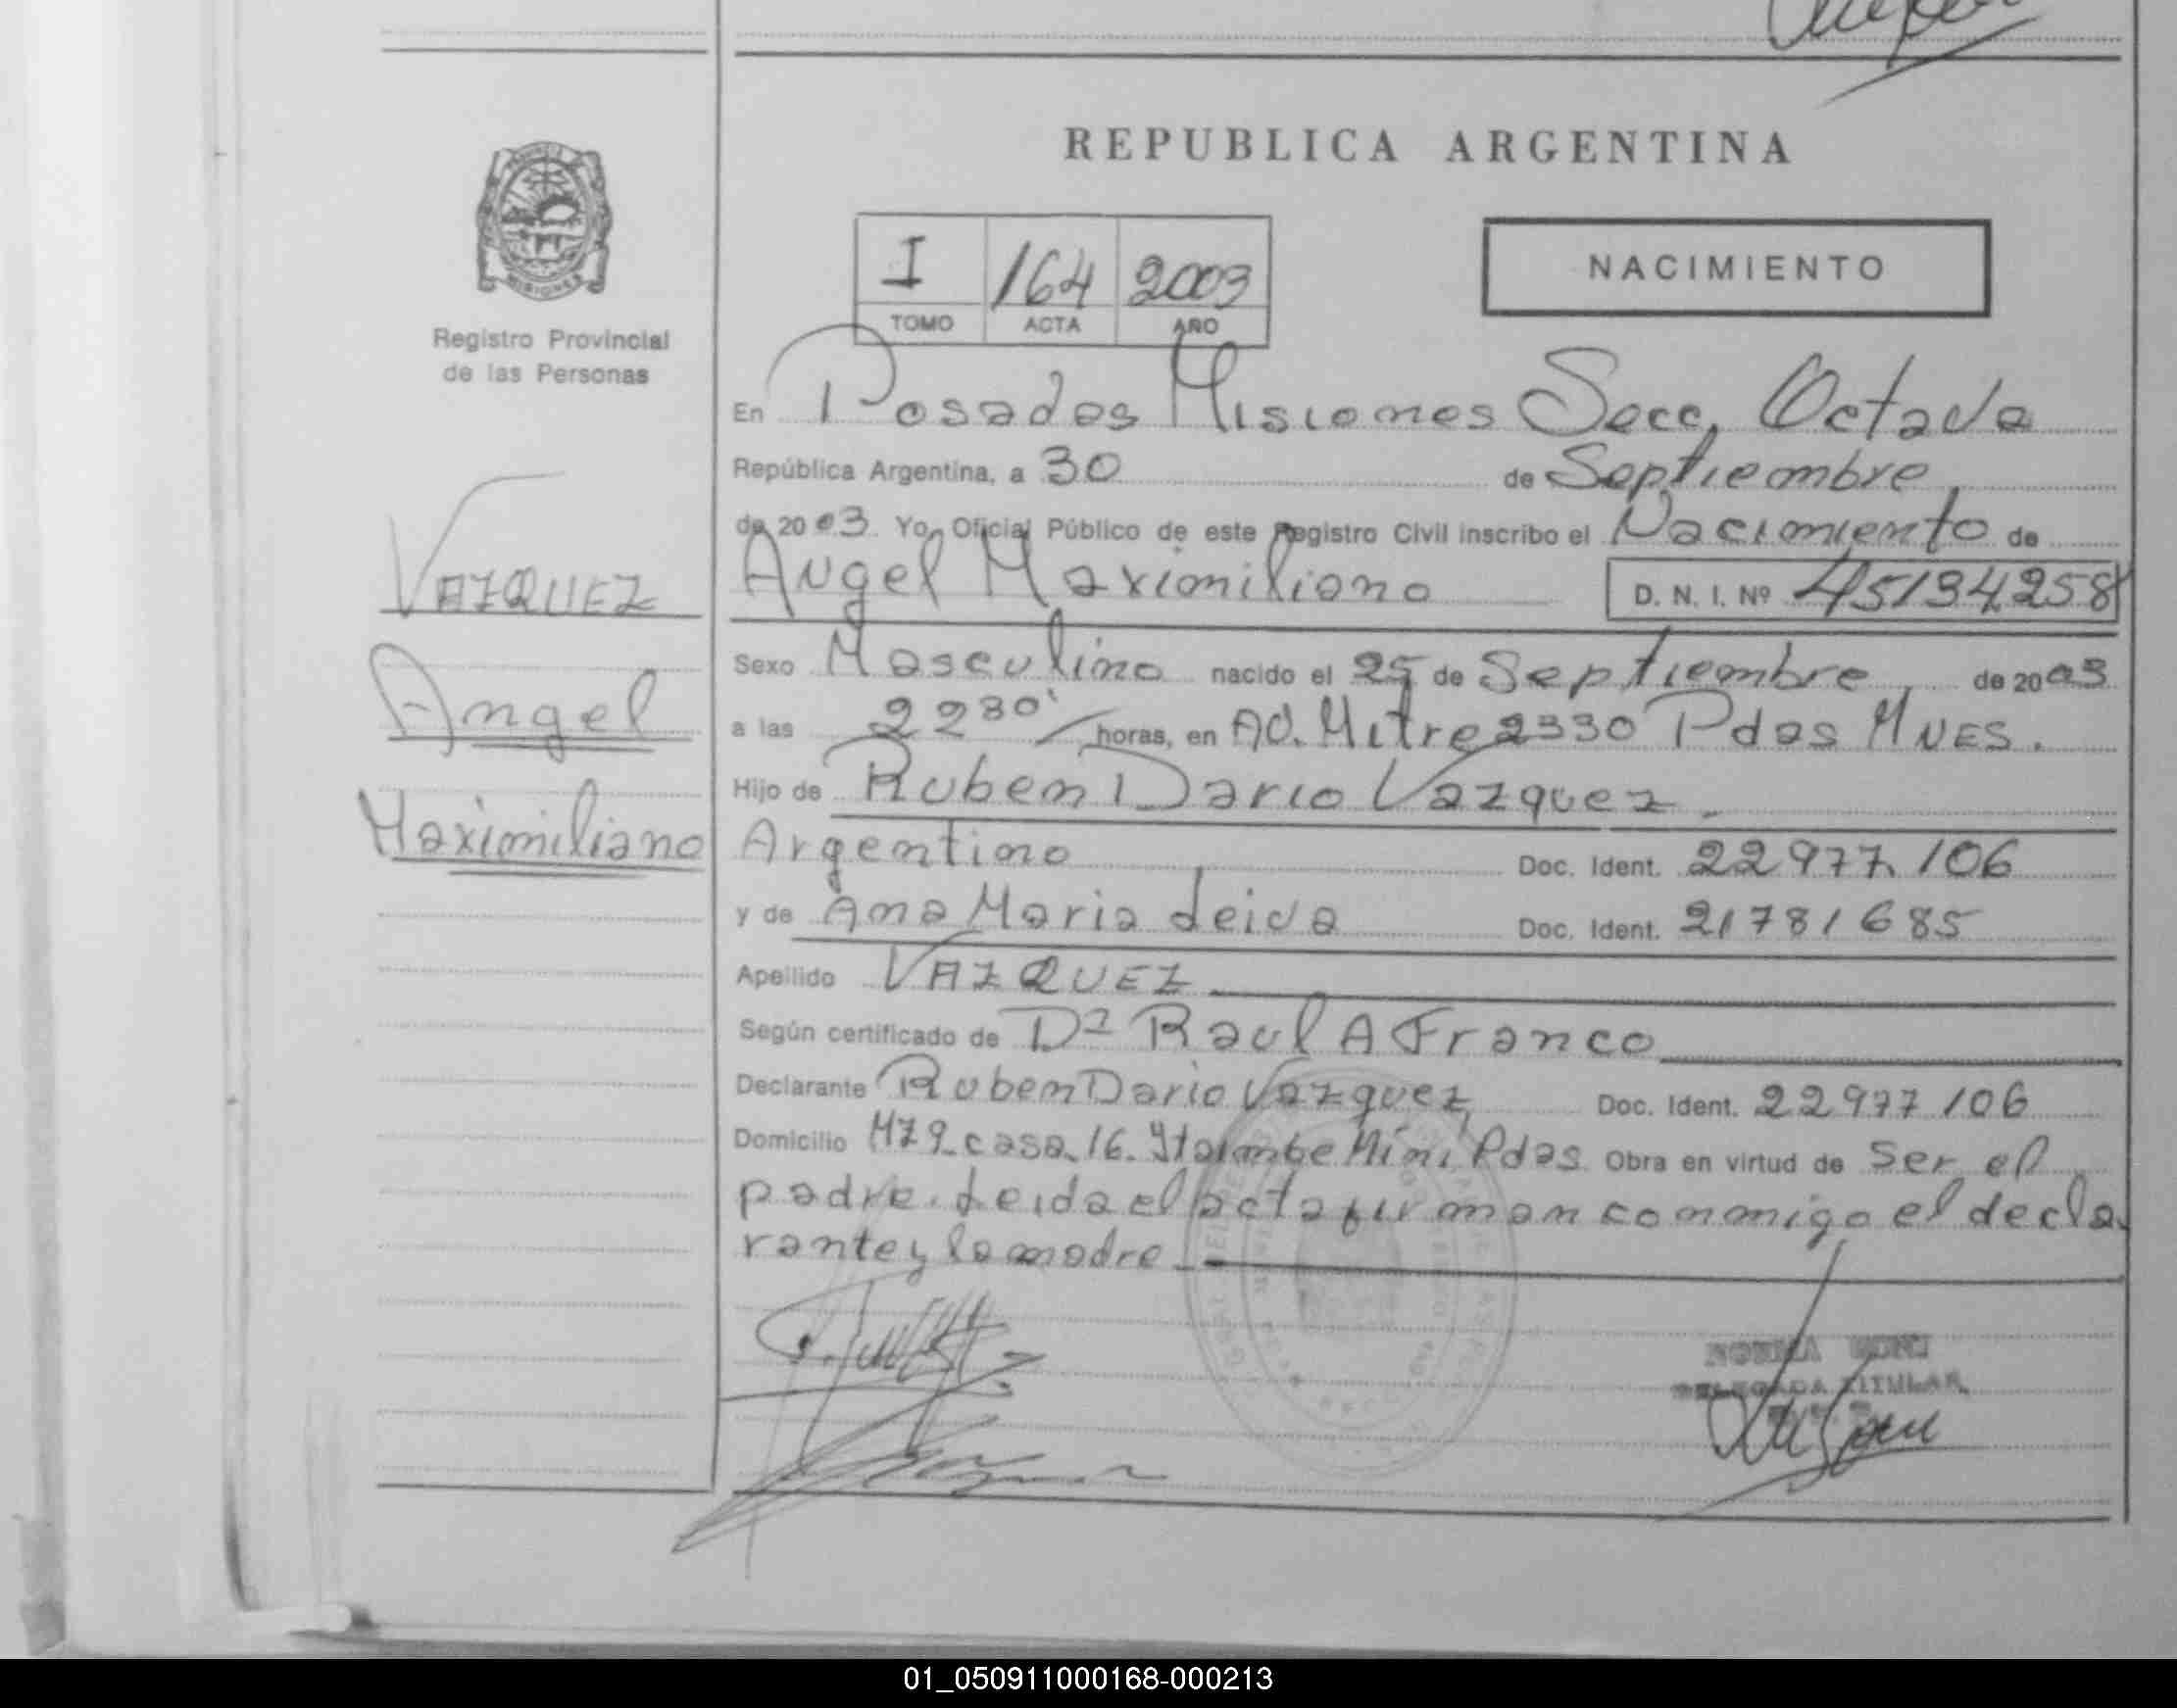 REPUBLICA ARGENTINA
PROVINCIA DE
MISIONES
Registro Provincial
de las Personas
I 164 2003
TOMO ACTA AÑO
NACIMIENTO
VAZQUEZ
Angel
Maximiliano
En Posadas Misiones Secc. Octava
República Argentina, a 30 de Septiembre
de 2003. Yo, Oficial Público de este Registro Civil inscribo el Nacimiento de
Angel Maximiliano D. N. I. Nº 45134258
Sexo Masculino nacido el 25 de Septiembre de 2003
a las 2230' horas, en AV. Mitre 2330 Pdas MNES.
Hijo de Ruben Dario Vazquez
Argentino Doc. Ident. 22977.106
y de Ana Maria Leiva Doc. Ident. 21781685
Apellido VAZQUEZ
Según certificado de Dr Raul A Franco
Declarante Ruben Dario Vazquez, Doc. Ident. 22977106
Domicilio M79 casa 16. Itaimbe Mini Pdas Obra en virtud de ser el
padre. Leida el acta firman conmigo el decla
rante y la madre
NORMA
DELEGADA TITULAR
01_050911000168-000213